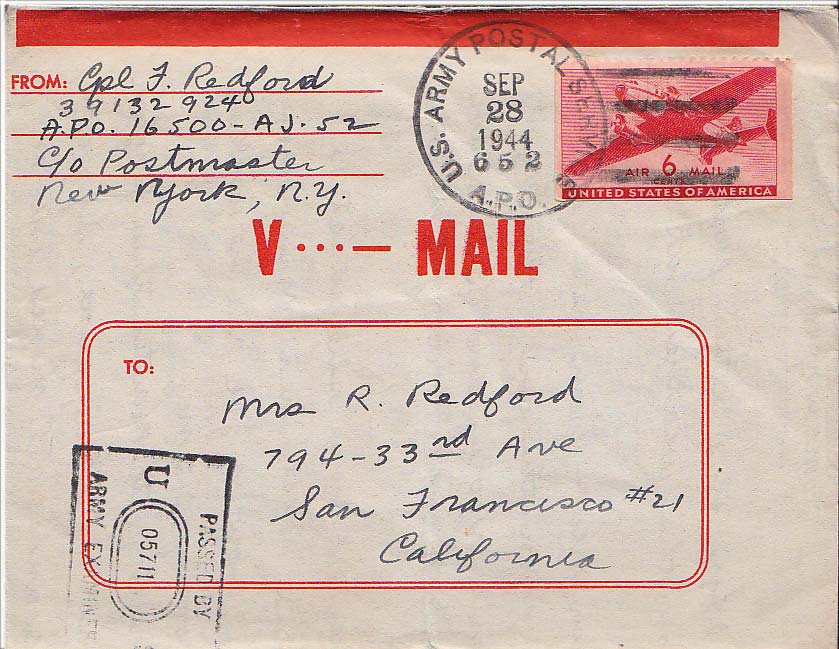 FROM: Cpl F. Redford
39132924
A.P.O. 16500-AJ-52
c/o Postmaster
New York, N.Y.
U.S. ARMY POSTAL SERVICE
SEP
28
1944
652
A.P.O.
AIR 6 MAIL
CENTS
UNITED STATES OF AMERICA
V ···— MAIL
TO:
Mrs R. Redford
794-33rd Ave
San Francisco #21
California
PASSED BY
U
05711
ARMY EXAMINER